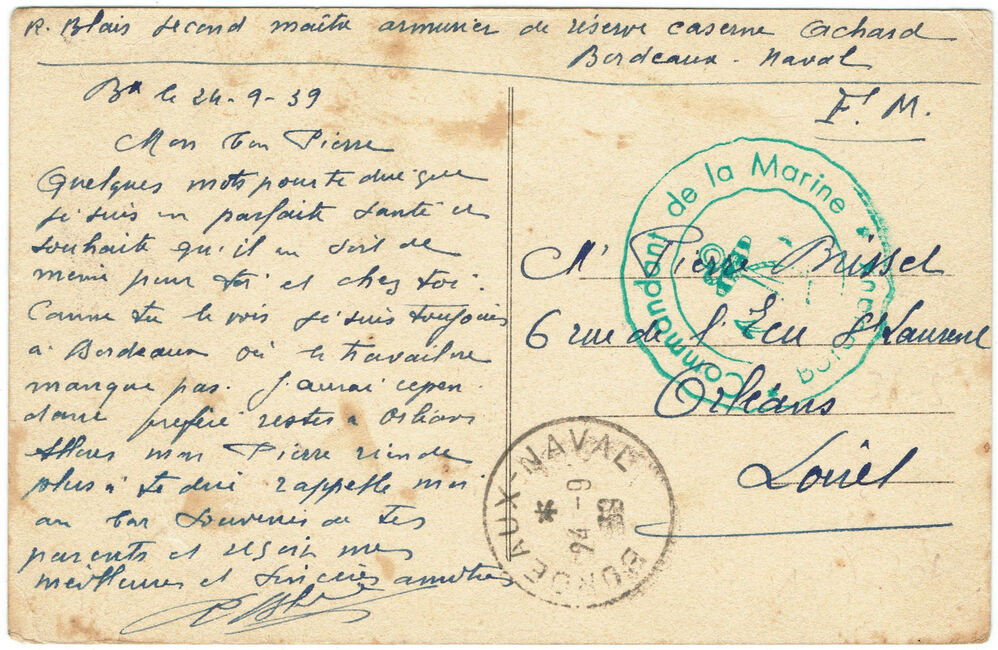 R. Blais second maître armurier de réserve caserne Achard
Bordeaux - Naval
Bx le 24-9-39
Mon bon Pierre
Quelques mots pour te dire que
je suis en parfaite santé et
souhaite qu'il en soit de
meme pour toi et chez toi.
Comme tu le vois je suis toujours
à Bordeaux où le travail ne
manque pas. J'aurai cepen
dant préféré rester à Orléans
Allons mon Pierre rien de
plus à te dire rappelle moi
au bon souvenir de tes
parents et reçois mes
meilleures et sincères amitiés
R Blais
F. M.
Commandant de la Marine * Bordeaux *
Mr Pierre Brissel
6 rue de l'Ecu St Laurent
Orléans
Loiret
BORDEAUX-NAVAL
*
24-9
39